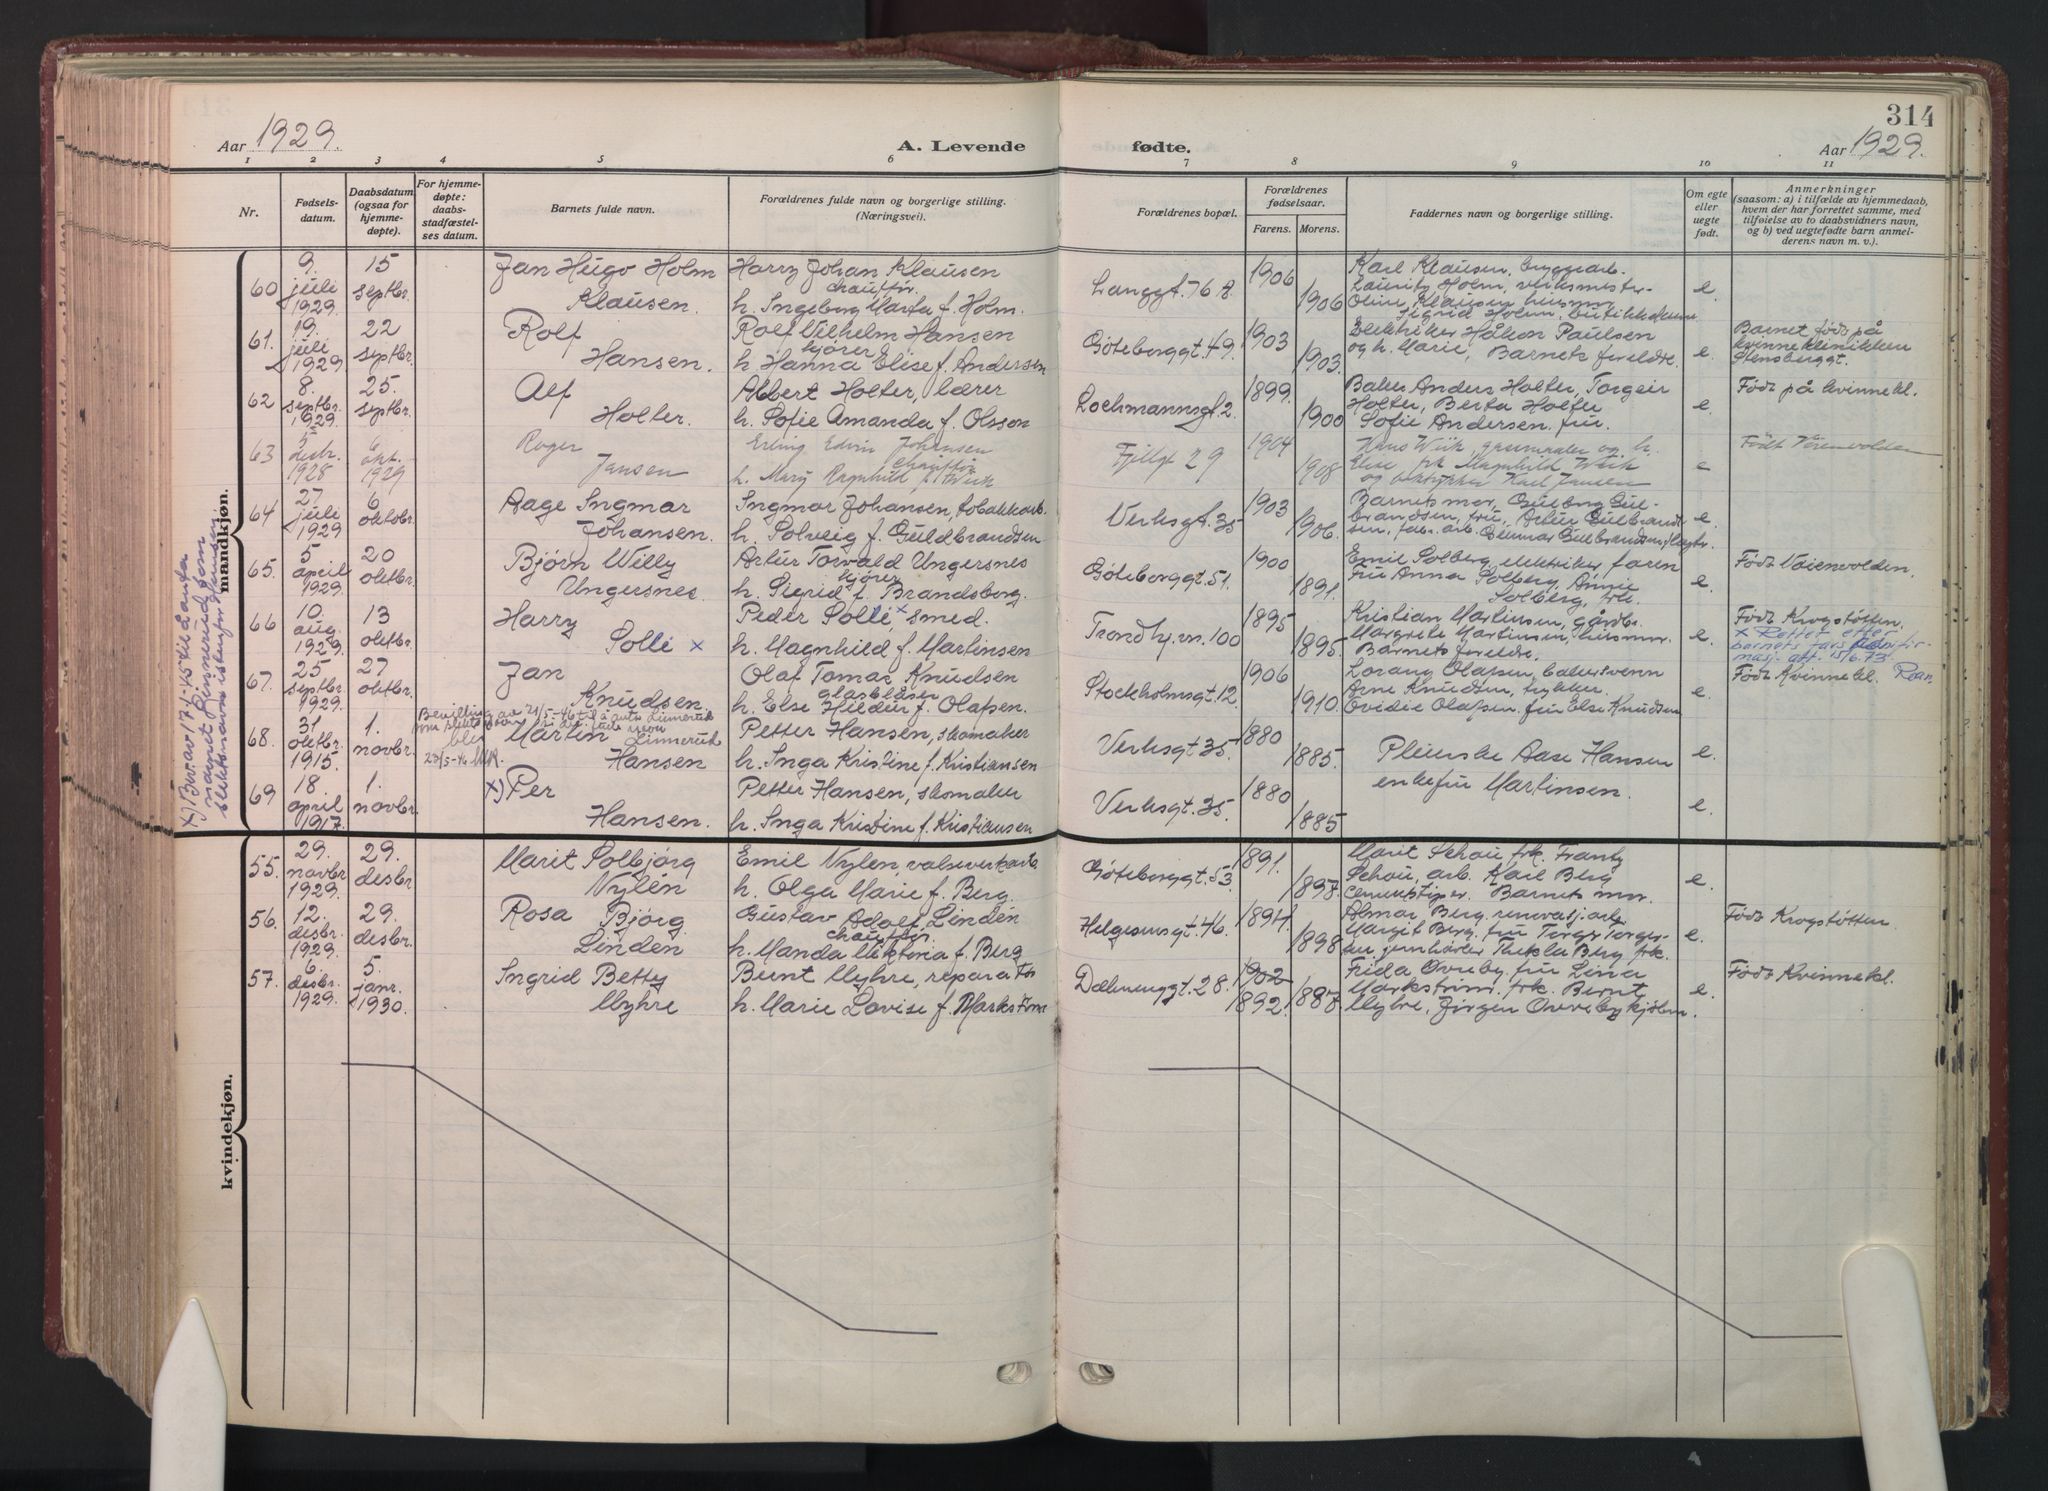 314
Aar 1929.
A. Levende
fødte.
Aar 1929.
1 2 3 4 5 6 7 8 9 10 11
Nr.
Fødsels-
datum.
Daabsdatum
(ogsaa for
hjemme-
døpte).
For hjemme-
døpte:
daabs-
stadfæstel-
ses datum.
Barnets fulde navn.
Forældrenes fulde navn og borgerlige stilling.
(Næringsvei).
Forældrenes bopæl.
Forældrenes
fødselsaar.
Farens. Morens.
Faddernes navn og borgerlige stilling.
Om egte
eller
uegte
født.
Anmerkninger
(saasom: a) i tilfælde av hjemmedaab,
hvem der har forrettet samme, med
tilføielse av to daabsvidners navn,
og b) ved uegtefødte barn anmel-
derens navn m. v.).
mandkjøn.
x) Bev. av 17/1-45 til å anta
navnet Linnerud som
slektsnavn istenfor Hansen
60
9.
juli
1929.
15
septbr.
Jan Hugo Holm
Klausen.
Harry Johan Klausen
chauffør.
h. Ingeborg Marta f. Holm.
Langgt. 76
1906
1906
Karl Klausen, bryggearb.
Lauritz Holm, verksmester
Oline Klausen husmor
Sigrid Holm,
e.
61.
19.
juli
1929
22
septbr.
Rolf
Hansen.
Rolf Vilhelm Hansen
kjører
h. Hanna Elise f. Andersen
Gøteborggt. 49.
1903
1903.
Elektriker Håkon Paulsen
og h. Marie, Barnets foreldre.
e.
Barnet født på
kvinneklinikken
Stensberggt.
62
8.
septbr.
1929.
25.
septbr.
Alf
Holter.
Albert Holter, lærer
h. Sofie Amanda f. Olsson
Lochmannsgt. 2.
1899.
1900
Baker Anders Holter, Torgeir
Holter, Berta Holter
Sofie Andersen fru.
e.
Født på kvinnekl.
63
5
desbr.
1928
6
okt.
1929
Roger
Jansen
Erling Edvin Johansen
chauffør
h. Mary Ragnhild f. Wiik
Fjellgt 29
1904
1908
Hans Wiik og h.
Elise frk Magnhild Wiik
og Karl Jansen
e
Født Vøienvolden
64
27
juli
1929
6
oktobr.
Aage Ingmar
Johansen.
Ingmar Johansen, tobakkarb.
h. Solveig f. Guldbrandsen
Verksgt. 35
1903
1906.
Barnets mor, Gulborg Gul-
brandsen, fru, Artur Gulbrand-
sen, fabr. arb. Gunnar Gulbrandsen,
e.
65.
5
april
1929.
20
oktbr.
Bjørn Willy
Ungersnes.
Artur Torvald Ungersnes
kjører
h. Sigrid f. Brandsborg.
Gøteborggt. 51.
1900
1891.
Emil Solberg elektriker, faren
Fru Anna Solberg, Annie
Solberg, fru.
e.
Født Vøienvolden.
66
10.
aug.
1929.
13
oktbr.
Harry
Solli x
Peder Solli, x smed.
h. Magnhild f. Martinsen
Trondhj. vn. 100
1895
1895.
Kristian Martinsen, gårdbr.
Margrete Martinsen, husmor.
Barnets foreldre.
e.
Født Krogstøtten.
x Rettet etter
barnets fars
att. 15/6.73
67.
25
septbr.
1929.
27
oktbr.
Jan
Knudsen.
Olaf Tomas Knudsen
glasblåser
h. Else Hildur f. Olafsen.
Stockholmsgt. 12.
1906
1910.
Lorang Olafsen, bakersvenn
Arne Knudsen, trykker.
Evidie Olafsen. fru Else Knudsen
e.
Født Kvinnekl.
68.
31
oktbr.
1915.
1.
novbr.
Bevilling av 21/5-46 til å anta Linnerud
som slektsnavn
23/5-46
Linnerud
Martin
Hansen
Petter Hansen, skomaker
h. Inga Kristine f. Kristiansen
Verksgt. 35.
1880
1885.
Pleierske Aase Hansen
e.
69
18.
april
1917.
1.
novbr.
x) Per
Hansen.
Petter Hansen, skomaker
h. Inga Kristine f. Kristiansen
Verksgt. 35.
1880
1885
enkefru Martinsen.
e.
kvindekjøn.
55.
29.
novbr
1929.
29.
desbr
Marit Solbjørg
Nylén
Emil Nylen, valseverkarb.
h. Olga Marie f. Berg.
Gøteborggt. 53.
1891.
1897.
Marit Schou frk. Frantz
Schou, arb. Karl Berg
Barnets mor.
e.
56.
12.
desbr.
1929.
29.
desbr.
Rosa Bjørg
Lindén
Gustav Adolf Lindén
chauffør
h. Manda Viktoria f. Berg
Helgesensgt. 46.
1894.
1898
Almar Berg, renovasj. arb.
Margit Berg, fru Torger Torger-
sen jernhøvler Thekla Berg frk.
e.
Født Krogstøtten
57.
6.
desbr.
1929.
5.
janr.
1930.
Ingrid Betty
Myhre
Bernt Myhre, reparatør
h. Marie Lovise f. Markstrøm
Dælenenggt. 28.
1902
1892.
1887.
Frida Overby, fru Lina
Markstrøm, frk. Bernt
Myhre, Jørgen Overby kjøbm.
e.
Født Kvinnekl.